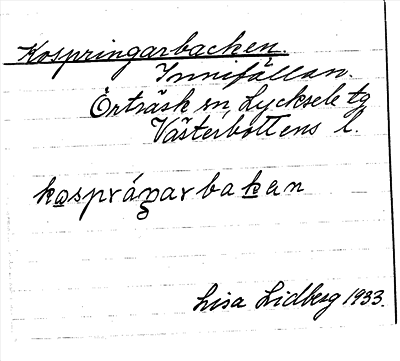 Kospringarbacken.
Innifällan.
Örträsk sn Lycksele tg
Västerbottens l.
kaspráŋarbakan
Lisa Lidberg 1933.